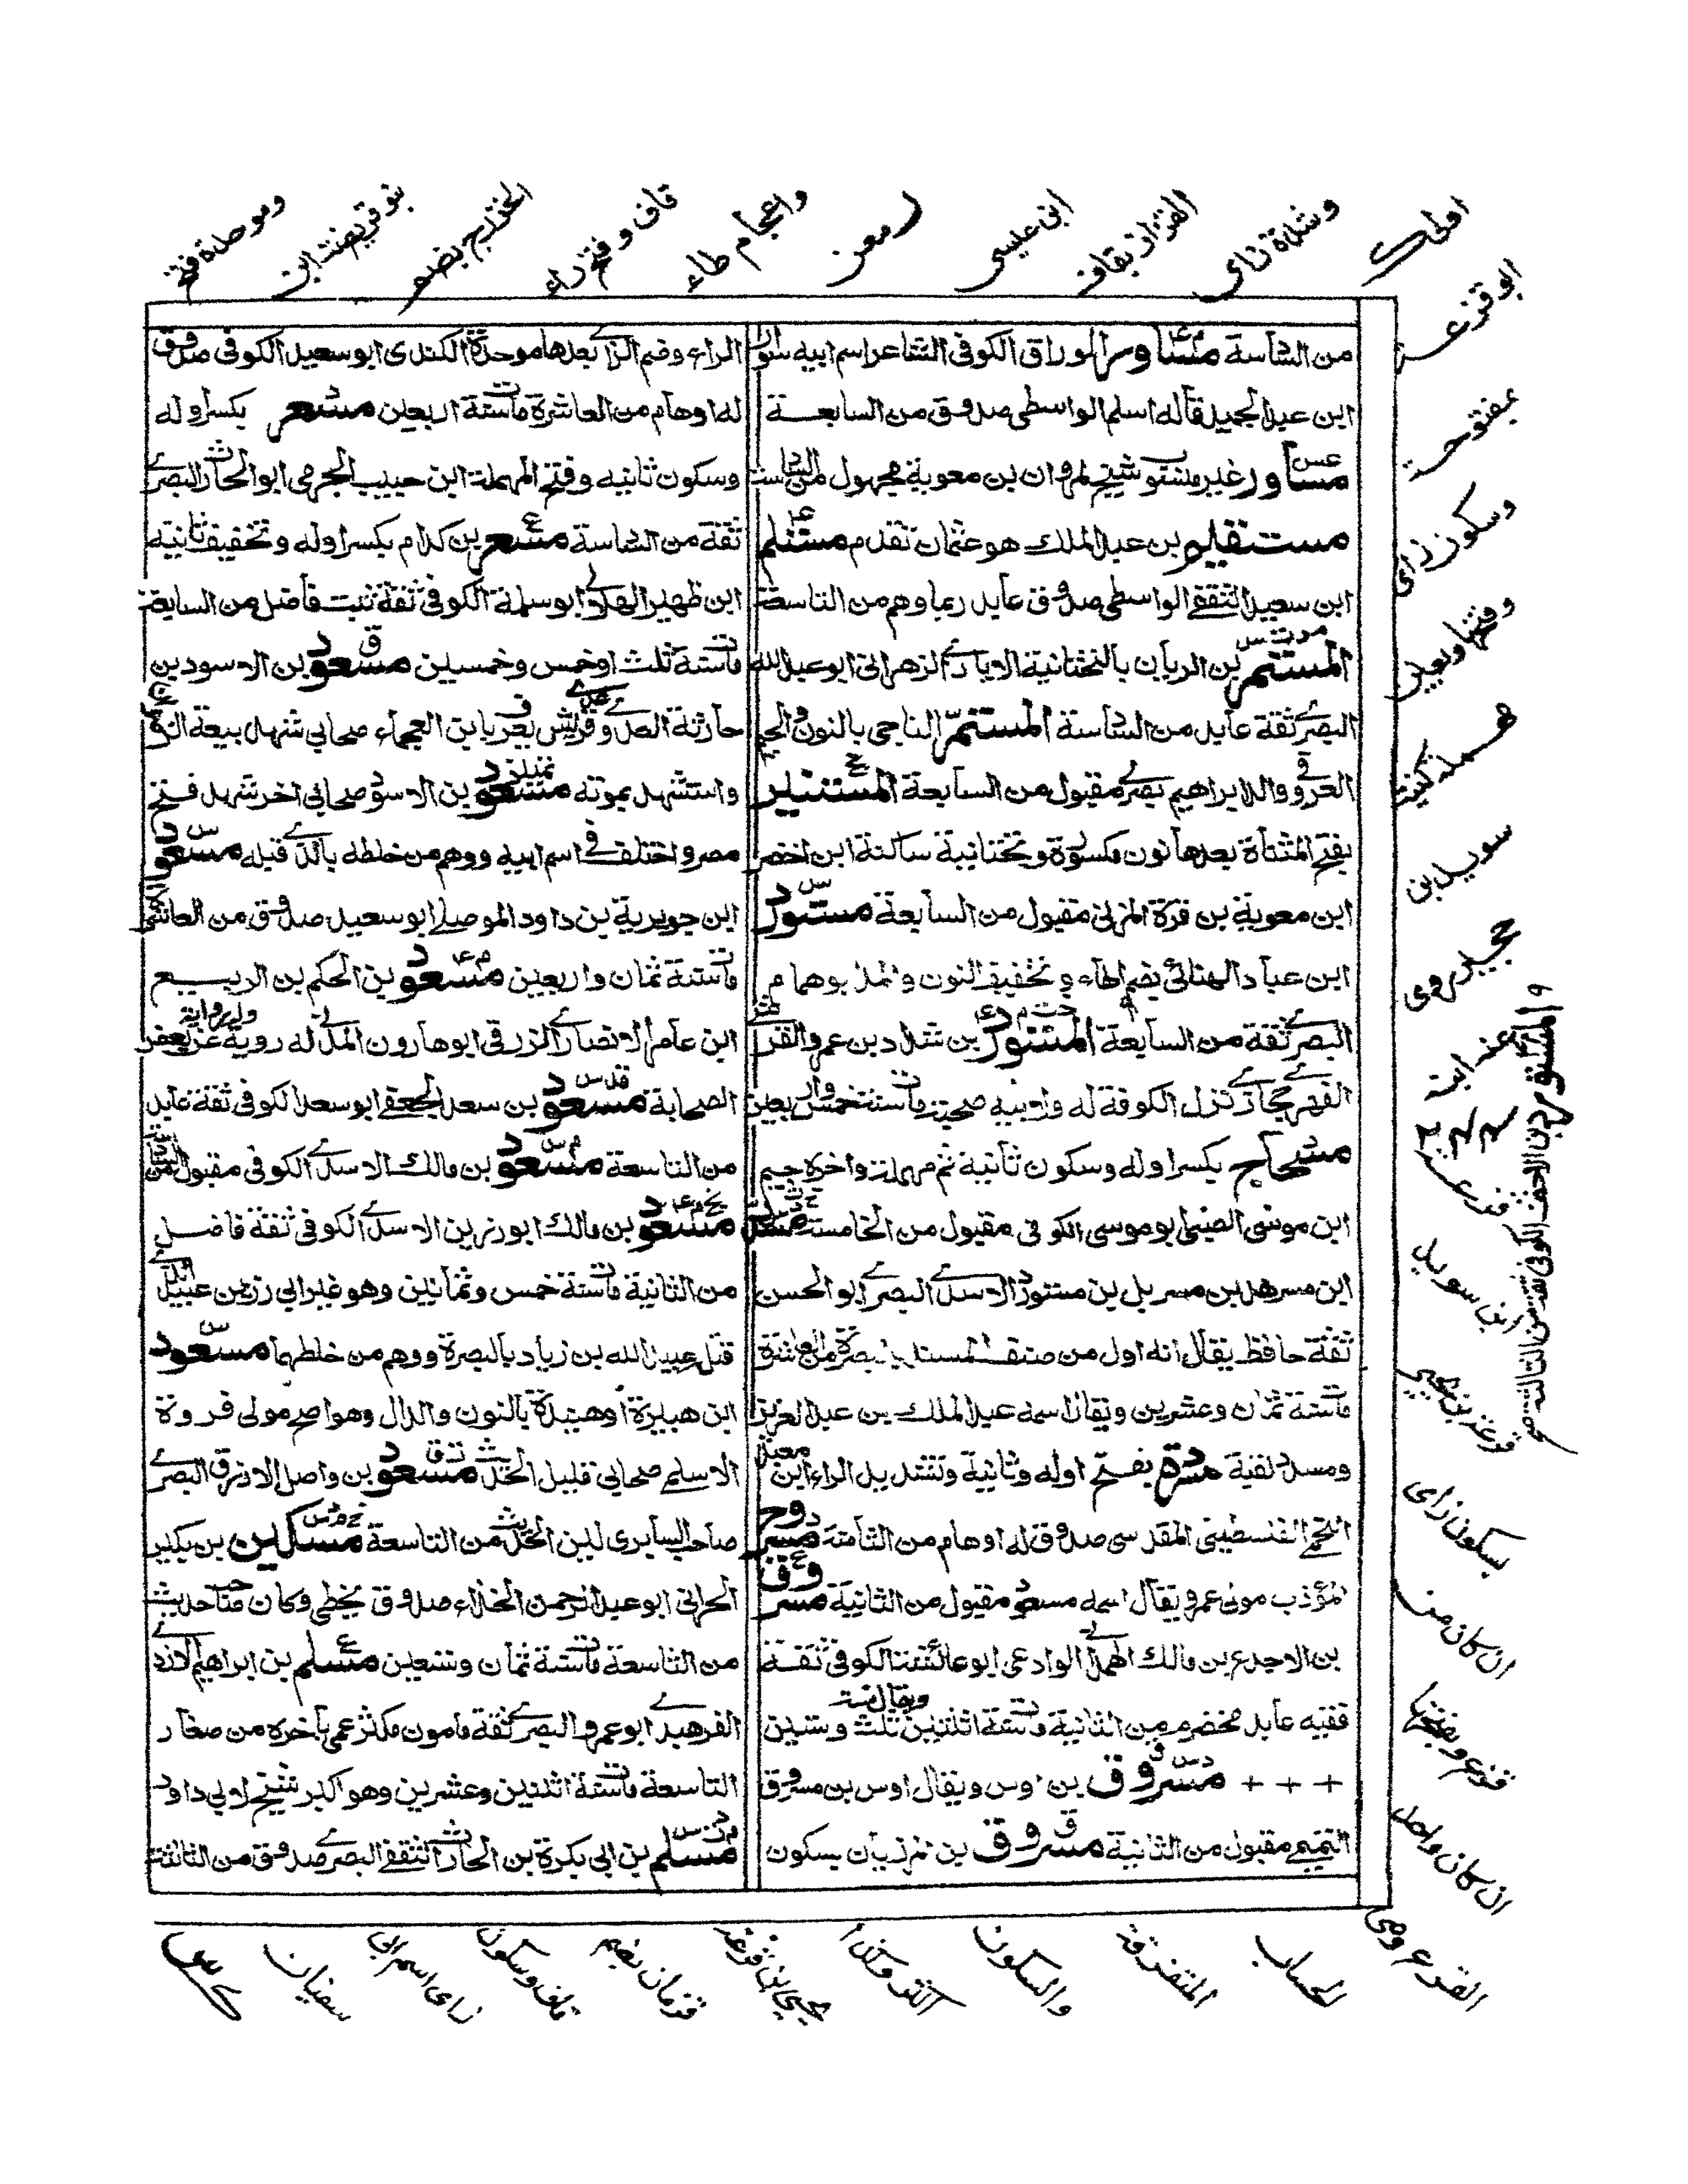 من السادسة مساور الوراق الكوفي الشاعر اسم ابيه سوار
ابن عبد الحميد قاله اسلم الواسطي صدوق من السابعة
مساور غير منسوب شيخ لمروان بن معوية مجهول من السادسة
مستقيم بن عبد الملك هو عثمان تقدم مستلم
ابن سعيد الثقفي الواسطي صدوق عابد ربما وهم من التاسعة
المستمر بن الريان بالتحتانية الايادي الزهراني ابو عبد الله
البصري ثقة عابد من السادسة المستمر الناجي بالنون والجيم
العروقي والد ابراهيم بصري مقبول من السابعة المستنير
بفتح المثناة بعدها نون مكسورة وتحتانية ساكنة ابن اخضر
ابن معوية بن قرة المزني مقبول من السابعة مستور
ابن عباد الهنائي بضم الهاء وتخفيف النون ومد ابو همام
البصري ثقة من السابعة المستورد بن شداد بن عمرو القرشي
الفهري حجازي نزل الكوفة له ولابيه صحبة مات سنة خمس واربعين
مسحاج بكسر اوله وسكون ثانية ثم مهملة واخره جيم
ابن موسى الضبي ابو موسى الكوفي مقبول من الخامسة مسدد
ابن مسرهد بن مسربل بن مستورد الاسدي البصري ابو الحسن
ثقة حافظ يقال انه اول من صنف المسند بالبصرة من العاشرة
مات سنة ثمان وعشرين ويقال اسمه عبد الملك بن عبد العزيز
ومسدد لقبه مسرة بفتح اوله وثانية وتشديد الراء ابن معبد
اللخمي الفلسطيني المقدسي صدوق له اوهام من الثامنة مسروح
المؤذب مولى عمر ويقال اسمه مسعود مقبول من الثانية مسروق
بن الاجدع بن مالك الهمداني الوادعي ابو عائشة الكوفي ثقة
فقيه عابد مخضرم من الثانية مات سنة اثنتين ويقال سنة ثلث وستين
+ + + مسروق بن اوس ويقال اوس بن مسروق
التميمي مقبول من الثانية مسروق بن المرزبان بسكون
الراء وضم الزاي بعدها موحدة الكندي ابو سعيد الكوفي صدوق
له اوهام من العاشرة مات سنة اربعين مسعر بكسر اوله
وسكون ثانيه وفتح المهملة ابن حبيب الجرمي ابو الحارث البصري
ثقة من السادسة مسعر بن كدام بكسر اوله وتخفيف ثانيه
ابن ظهير الهلالي ابو سلمة الكوفي ثقة ثبت فاضل من السابعة
مات سنة ثلث او خمس وخمسين مسعود بن الاسود بن
حارثة العدوي عدي قريش يعرف بابن العجماء صحابي شهد بيعة الرضوان
واستشهد بموته مسعود بن الاسود صحابي اخر شهد فتح
مصر واختلف في اسم ابيه ووهم من خلطه بالذي قبله مسعود
ابن جويرية بن داود الموصلي ابو سعيد صدوق من العاشرة
مات سنة ثمان واربعين مسعود بن الحكم بن الربيع
ابن عامر الانصاري الزرقي ابو هارون المدني له روية وله رواية عن بعض
الصحابة مسعود بن سعد الجعفي ابو سعد الكوفي ثقة عابد
من التاسعة مسعود بن مالك الاسدي الكوفي مقبول من السادسة
مسعود بن مالك ابو رزين الاسدي الكوفي ثقة فاضل
من الثانية مات سنة خمس وثمانين وهو غير ابي رزين عبيد الذي
قتل عبيد الله بن زياد بالبصرة ووهم من خلطهما مسعود
ابن هبيرة او هنيدة بالنون والدال وهو اصح مولى فروة
الاسلمي صحابي قليل الحديث مسعود بن واصل الازرق البصري
صاحب السابري لين الحديث من التاسعة مسكين بن بكير
الحراني ابو عبد الرحمن الحذاء صدوق يخطي وكان صاحب حديث
من التاسعة مات سنة ثمان وتسعين مسلم بن ابراهيم الازدي
الفراهيدي ابو عمرو البصري ثقة مامون مكثر عمي باخره من صغار
التاسعة مات سنة اثنين وعشرين وهو اكبر شيخ لابي داود
مسلم بن ابي بكرة بن الحارث الثقفي البصري صدوق من الثالثة
وشدة زاى
القزاز بقاف
ابن عيسى
معن
واعجام طاء
قاف وفتح راء
بضم
ابو قزعة
بمفتوحة
وسكون زاى
كنية
سويد بن
حجير روى
عنه ابنه
قزعة
ابن سويد
بسكون زاى
ان كان من
ان كان واحد
القزع وهى
السحاب
المتفرقة
والسكون
قزمان بضم
قاف وسكون
زاى اسم ابى
سفيان
والمستورد بن الاحنف الكوفي ثقة من الثالثة